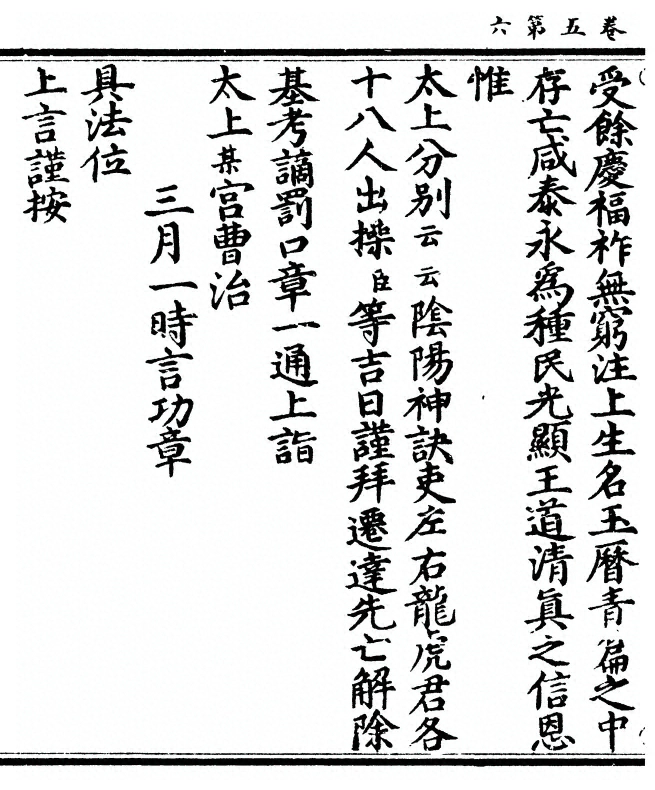 卷五第六
受餘慶福祚無窮注上生名玉曆青篇之中
存亡咸泰永為種民光顯王道清真之信恩
惟
太上分别云云陰陽神訣吏左右龍虎君各
十八人出操臣等吉日謹拜遷達先亡解除
基考謫罰口章一通上詣
太上某宮曹治
三月一時言功章
具法位
上言謹按